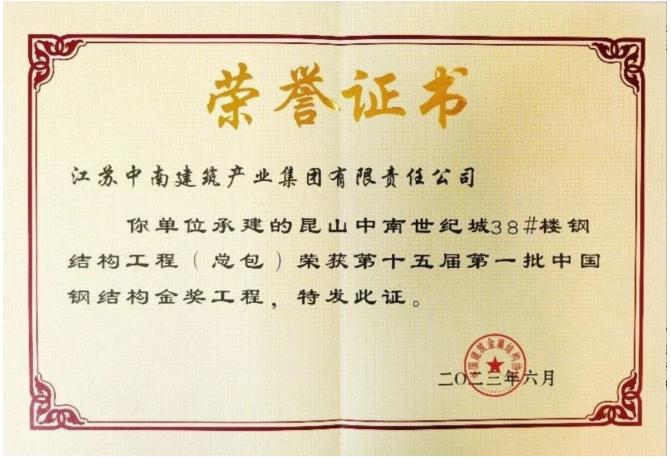 荣誉证书
江苏中南建筑产业集团有限责任公司
你单位承建的昆山中南世纪城38#楼钢
结构工程（总包）荣获第十五届第一批中国
钢结构金奖工程，特发此证。
中国建筑金属结构协会
二〇二三年六月